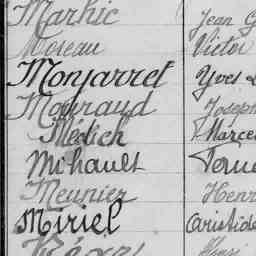 Marhic Jean G
Moreau Victor
Monjarret Yves L
Mouraud Joseph
Médich Marce
Mihault
Meunier Henr
Miriel Aristide